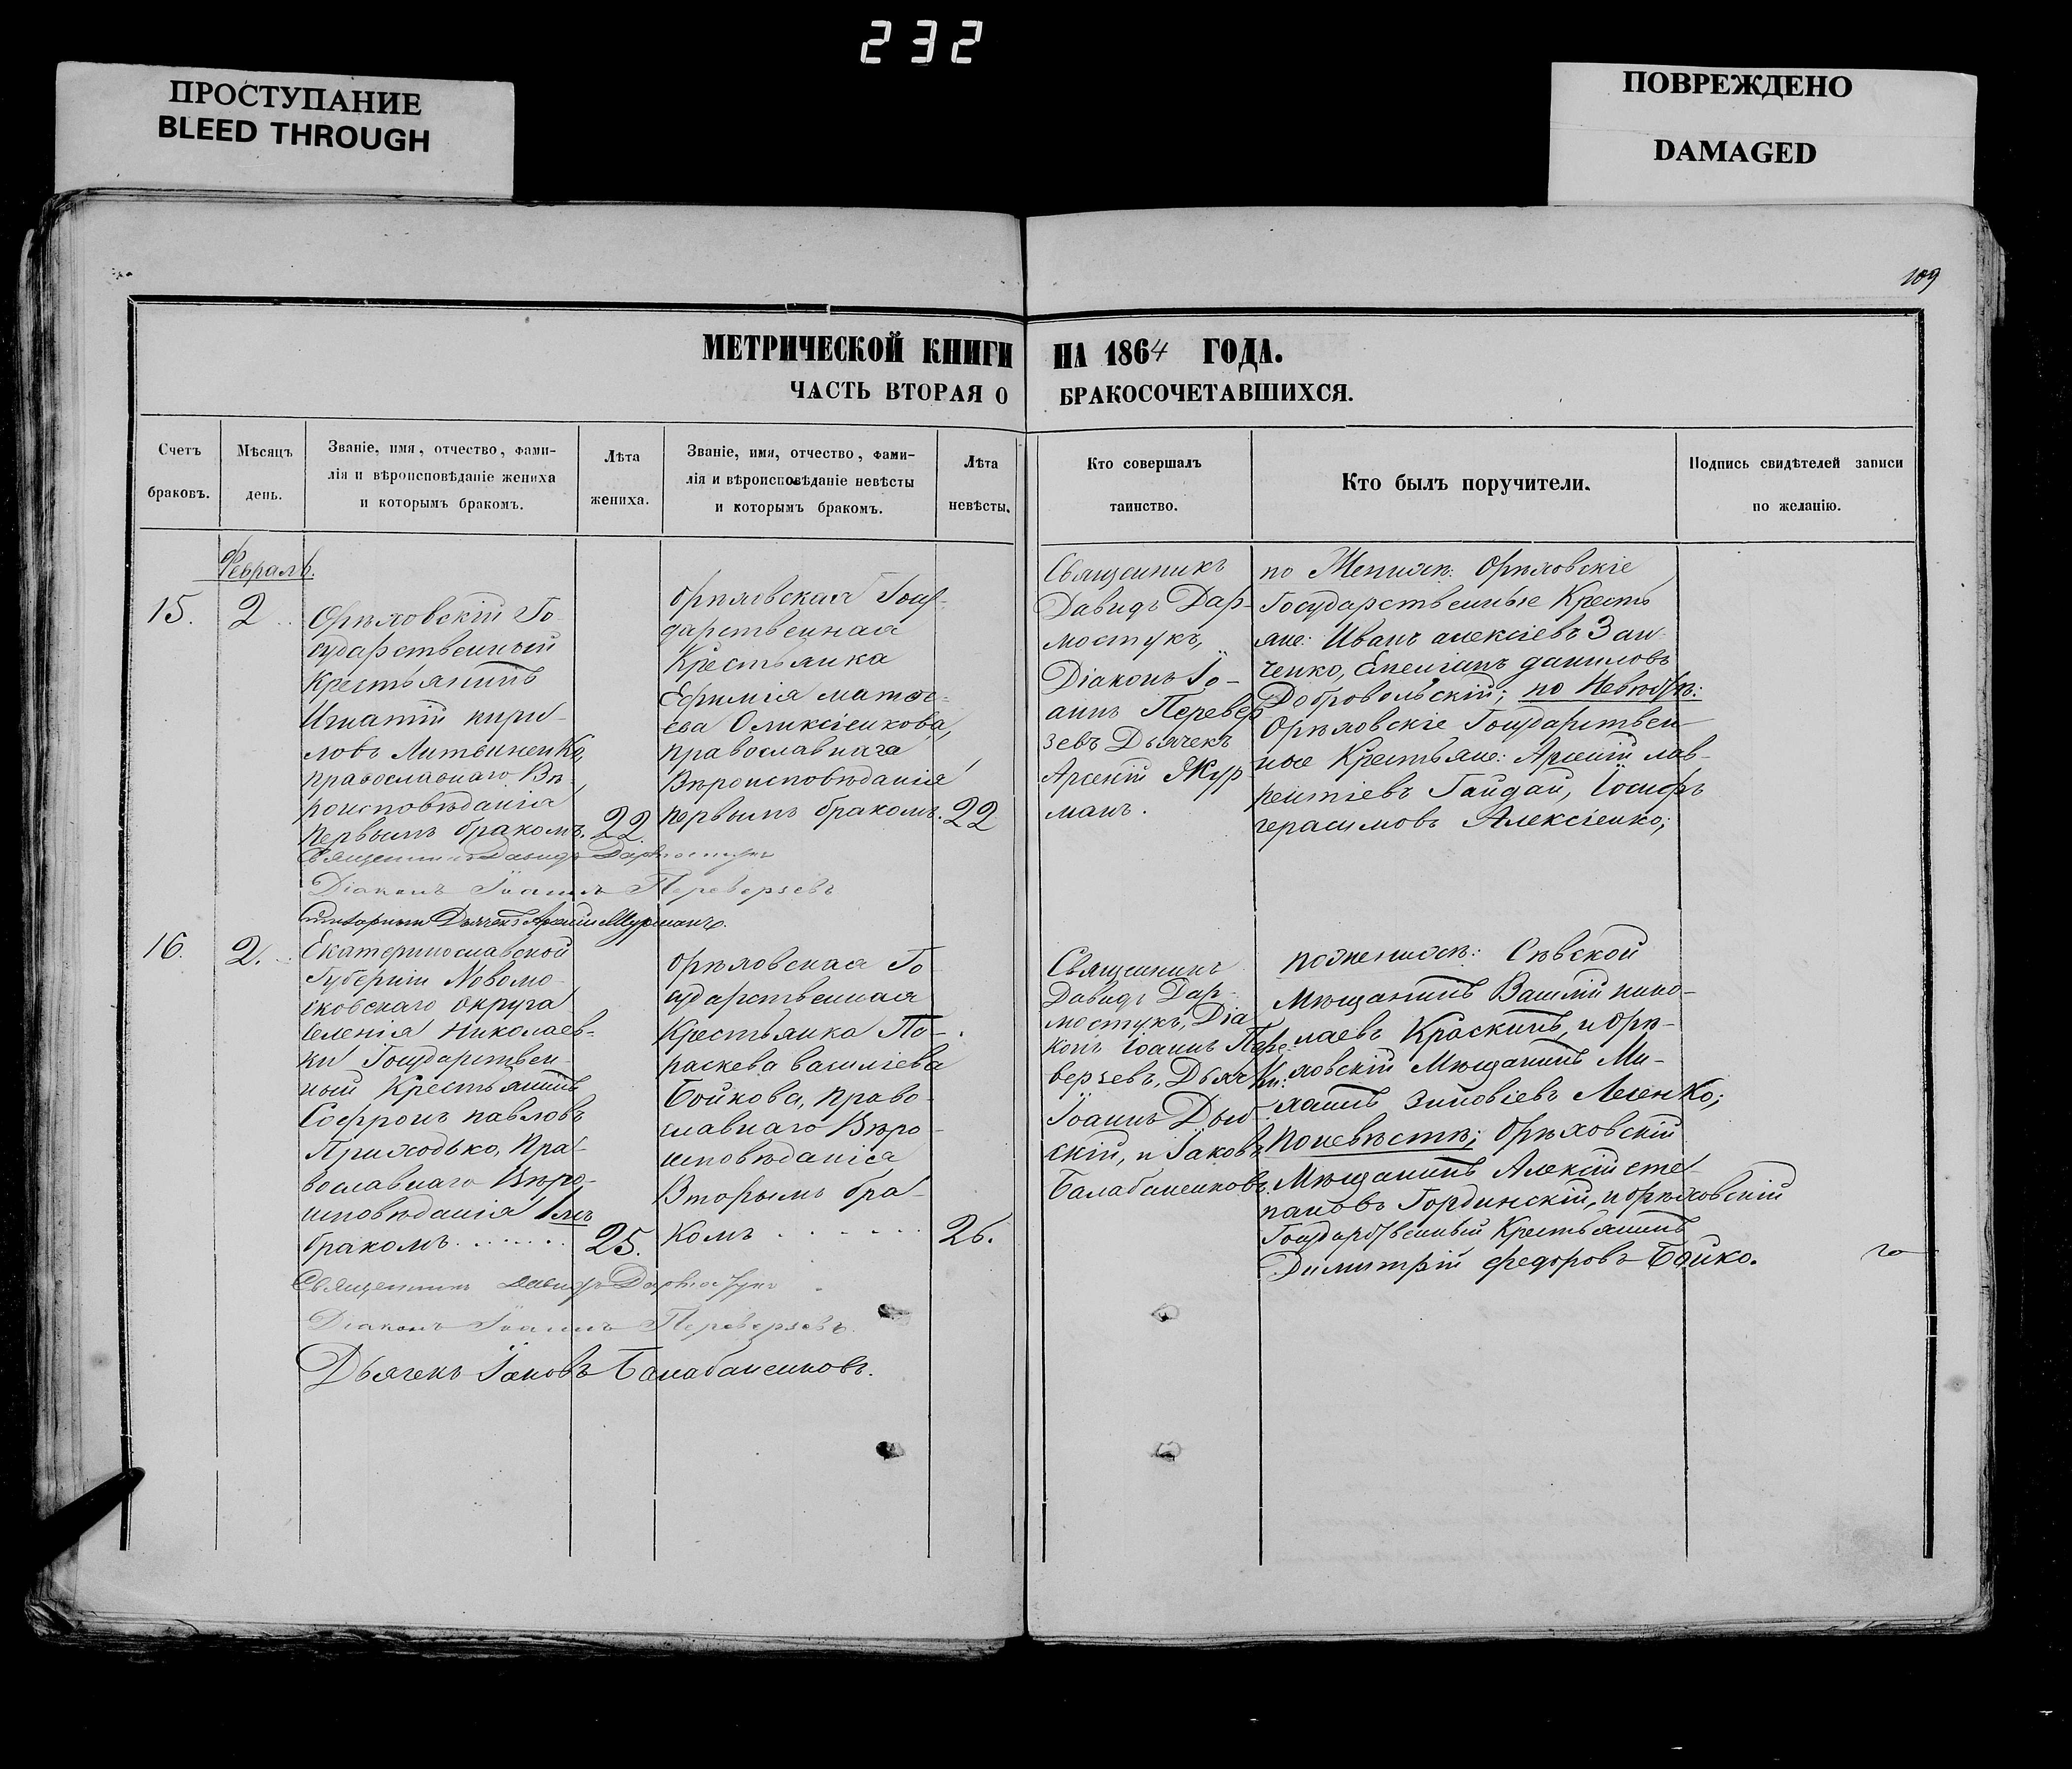 232
ПРОСТУПАНИЕ
BLEED THROUGH
ПОВРЕЖДЕНО
DAMAGED
109
МЕТРИЧЕСКОЙ КНИГИ НА 1864 ГОДА.
ЧАСТЬ ВТОРАЯ О БРАКОСОЧЕТАВШИХСЯ.
Счетъ
браковъ.
Мѣсяцъ
день.
Званіе, имя, отчество, фами-
лія и вѣроисповѣданіе жениха
и которымъ бракомъ.
Лѣта
жениха.
Званіе, имя, отчество, фами-
лія и вѣроисповѣданіе невѣсты
и которымъ бракомъ.
Лѣта
невѣсты.
Кто совершалъ
таинство.
Кто былъ поручители.
Подпись свидѣтелей записи
по желанію.
Февраль.
15.
2
Орѣховскій Го-
сударственный
Крестьянинъ
Игнатій кири-
ловъ Литвиненко,
православнаго Вѣ-
роисповѣданія
первымъ бракомъ.
22
Орѣховская Госу-
дарственная
Крестьянка
Ефимія матѳе-
ева Оликсіенкова,
православнаго
Вѣроисповѣданія
первымъ бракомъ.
22
Священникъ
Давидъ Дар-
мостукъ,
Діаконъ Іо-
аннъ Перевер
зевъ Дьячекъ
Арсеній Жур
манъ.
по Женихѣ: Орѣховскіе
Государственные Кресть
яне: Иванъ алексіевъ Зан
ченко, Емеліанъ даниловъ
Добровольскій; по Невѣстѣ:
Орѣховскіе Государствен
ные Крестьяне: Арсеній лав-
рентіевъ Гайдай, Іосифъ
герасимовъ Алексіенко;
Священникъ Давидъ Дармостукъ
Діаконъ Іоаннъ Переверзевъ
Дьячекъ Арсеній Журманъ.
16.
2.
Екатеринославской
Губерніи Новомо-
сковскаго округа
селенія Николаев-
ки Государствен-
ный Крестьянинъ
Софронъ павловъ
Приходько, Пра-
вославнаго Вѣро-
исповѣданія 1мъ
бракомъ.......
25.
Орѣховская Го
сударственная
Крестьянка Па-
раскева василіева
Бойкова, право-
славнаго Вѣро-
исповѣданія
Вторымъ бра-
комъ......
26.
Священникъ
Давидъ Дар-
мостукъ, Діа
конъ Іоаннъ Пере-
верзевъ, Дьячки:
Іоаннъ
и Іаковъ
Балабаненковъ.
по женихѣ: Сѣвской
Мѣщанинъ Василій нико-
лаевъ Краскинъ, и Орѣ-
ховскій Мѣщанинъ Ми-
хаилъ зиновіевъ Леенко;
по невѣстѣ; Орѣховскій
Мѣщанинъ Алексій сте-
пановъ Гординскій, и орѣховскій
Государственный Крестьянинъ
Димитрій федоровъ Бойко.
Священникъ Давидъ Дармостукъ
Діаконъ Іоаннъ Переверзевъ.
Дьячекъ Іаковъ Балабаненковъ.